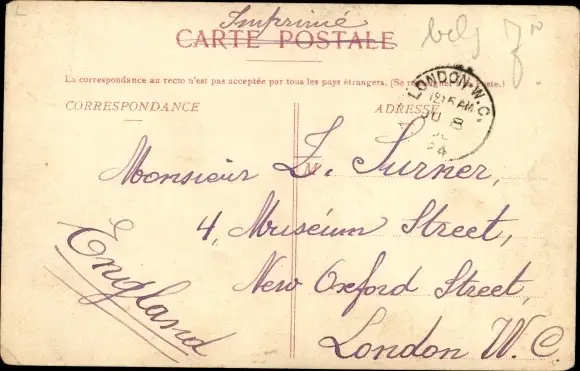 Imprimé
CARTE POSTALE
La correspondance au recto n'est pas acceptée par tous les pays étrangers. (Se
CORRESPONDANCE
ADRESSE
LONDON-W.C.
1215AM
JU 8
04
M
Monsieur Z. Surner,
4, Muséum Street,
New Oxford Street,
London W.C.
England